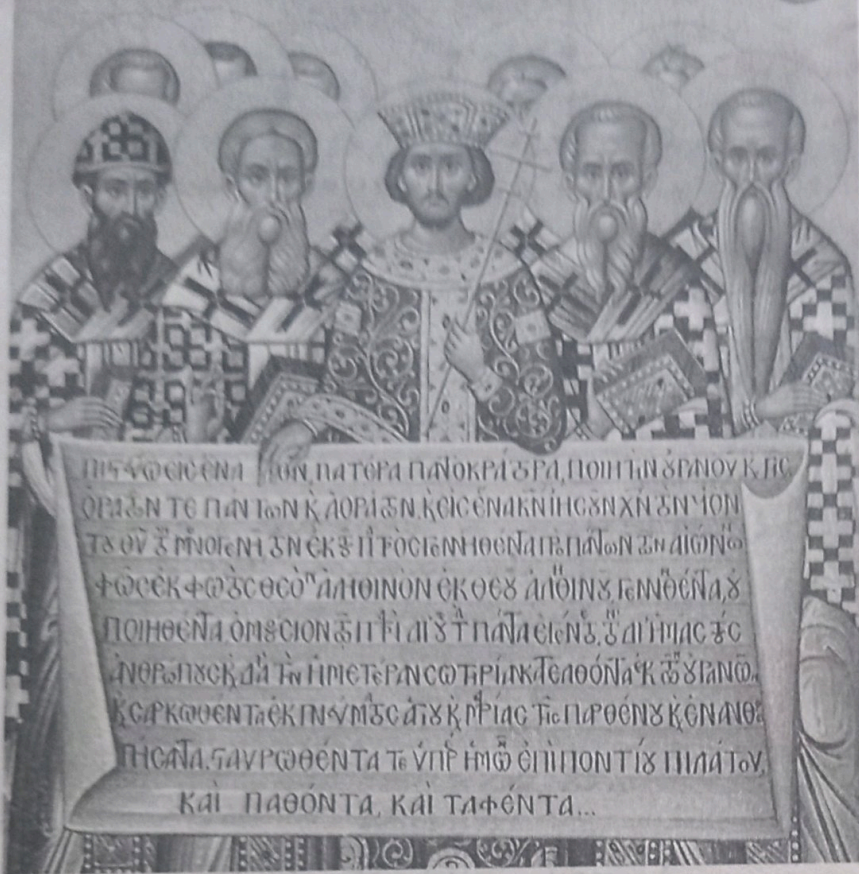 ΠΙΣΤΕΎΩ ΕΙΣ ΕΝΑ ΘΕΟΝ, ΠΑΤΈΡΑ ΠΑΝΟΚΡΆΤΟΡΑ, ΠΟΙΗΤΉΝ ȢΡΑΝΟΥ Κ ΓΗΣ
ΟΡΑΤῶΝ ΤΕ ΠΆΝΤΩΝ Κ ΑΟΡΆΤΩΝ. Κ ΕΙΣ ΈΝΑ ΚΝ ΙΗСȢΝ ΧΝ ΤΟΝ ΥΙΟΝ
ΤȢ ΘΥ ΤΟΝ ΜΝΟΓΕΝΗ ΤΟΝ ΈΚ ΤȢ ΠΤΡΟС ΓΕΝΝΗΘΕΝΑ ΠΡΟ ΠΑΝΤΩΝ ΤΩΝ ΑΙΏΝΩ
ΦΩС ΈΚ ΦΩΤΟС ΘΕΟΝ ΑΛΗΘΙΝΟΝ ΕΚ ΘΕȢ ΑΛΗΘΙΝȢ, ΓΕΝΝΗΘΈΝΤΑ, Ȣ
ΠΟΙΗΘΕΝΤΑ ΟΜȢСΙΟΝ ΤΩ ΠΤΡΙ ΔΙ ȢΤΑ ΠΆΝΤΑ ΕΓΕΝΕΤΟ, ΤΟΝ ΔΙ ΗΜΑС ΤȢС
ΑΝΘΡΩΠȢС Κ ΔΙΑ ΤΉΝ ΗΜΕΤΈΡΑΝ СΩΤΗΡΊΑΝ ΚΑΤΕΛΘΌΝΤΑ ΕΚ ΤΩΝ ȢΡΑΝΩ.
Κ СΑΡΚΩΘΕΝΤΑ ΕΚ ΠΝΕΎΜΑΤΟС ΑΓΊȢ Κ ΜΑΡΊΑС ΤΗС ΠΑΡΘΈΝȢ Κ ΕΝΑΝΘΡΩ
ΠΉСΑΝΤΑ. СΤΑΥΡΩΘΈΝΤΑ ΤΕ ΥΠΕΡ ΗΜΩΝ ΕΠΊ ΠΟΝΤΊȢ ΠΙΛΆΤΟΥ,
ΚΑΙ ΠΑΘΌΝΤΑ, ΚΑΙ ΤΑΦΈΝΤΑ...